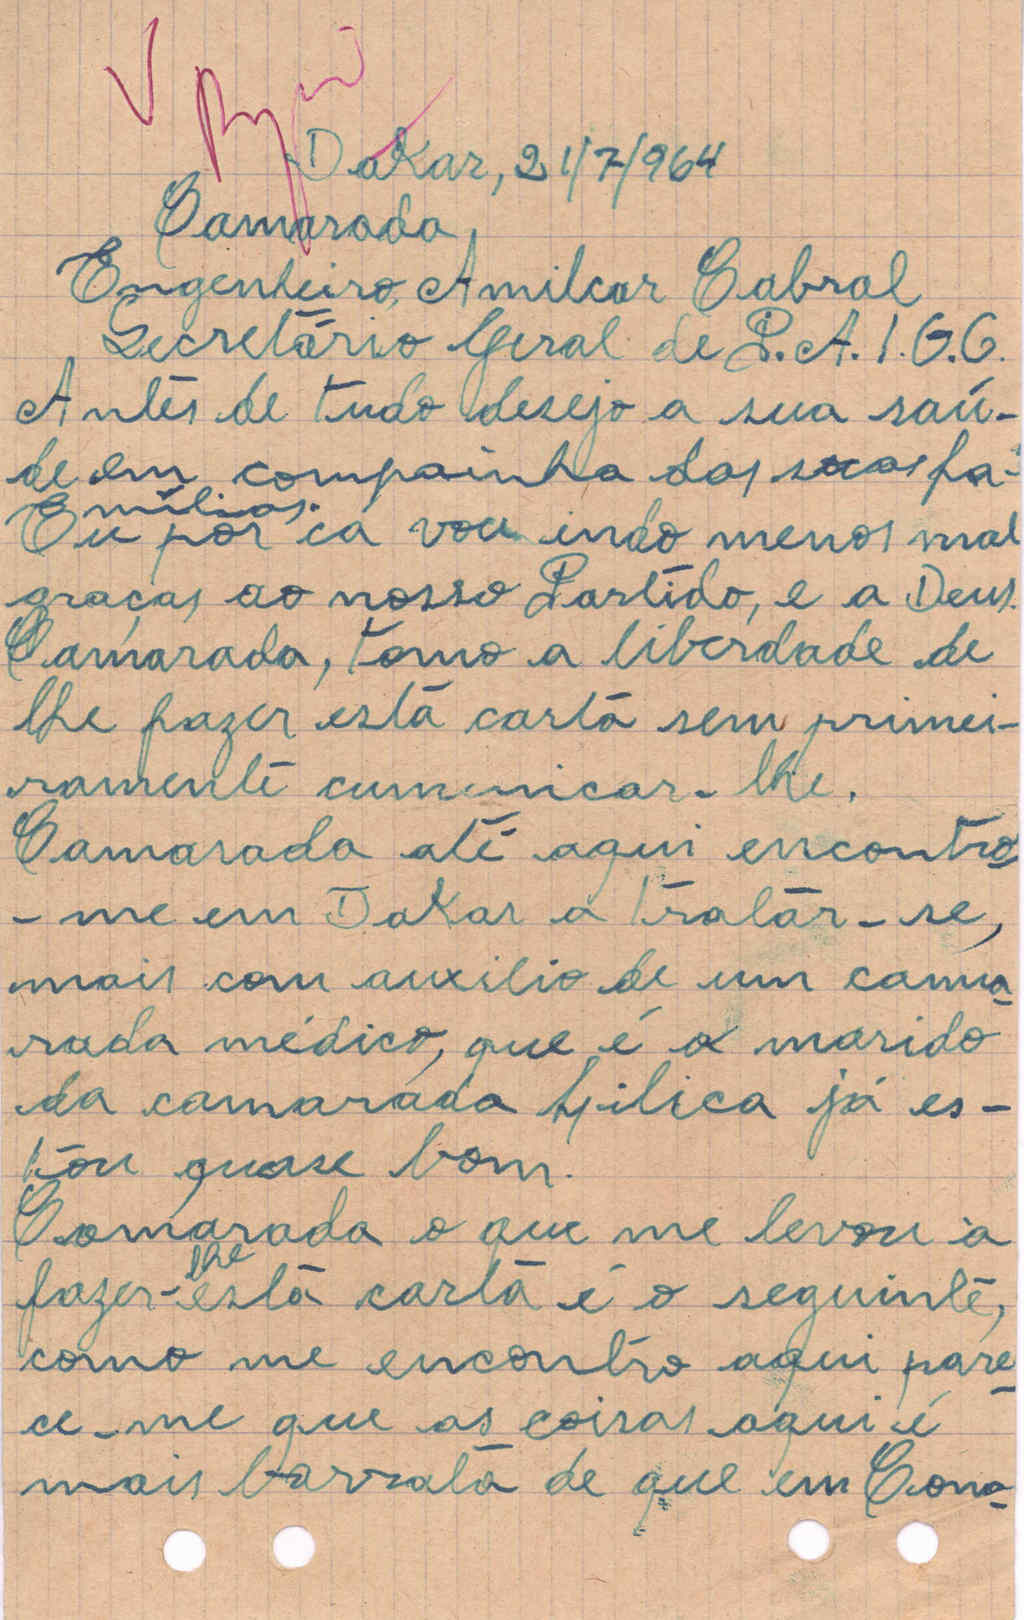 Dakar, 21/7/964
Camarada,
Engenheiro, Amilcar Cabral
Secretário Geral de P.A.I.G.C.
Antes de tudo desejo a sua saú-
de em compainha das suas fa-
mílias.
Eu por cá vou indo menos mal
graças ao nosso Partido, e a Deus.
Camarada, tomo a liberdade de
lhe fazer está carta sem primei-
ramente cumunicar-lhe.
Camarada até aqui encontro
-me em Dakar a tratar-se,
mais com auxilio de um cama-
rada médico, que é o marido
da camarada Lilica já es-
tou quase bom.
Camarada o que me levou a
fazer-lhe está carta é o seguinte,
como me encontro aqui pare-
ce-me que as coisas aqui é
mais barrata de que em Cona-